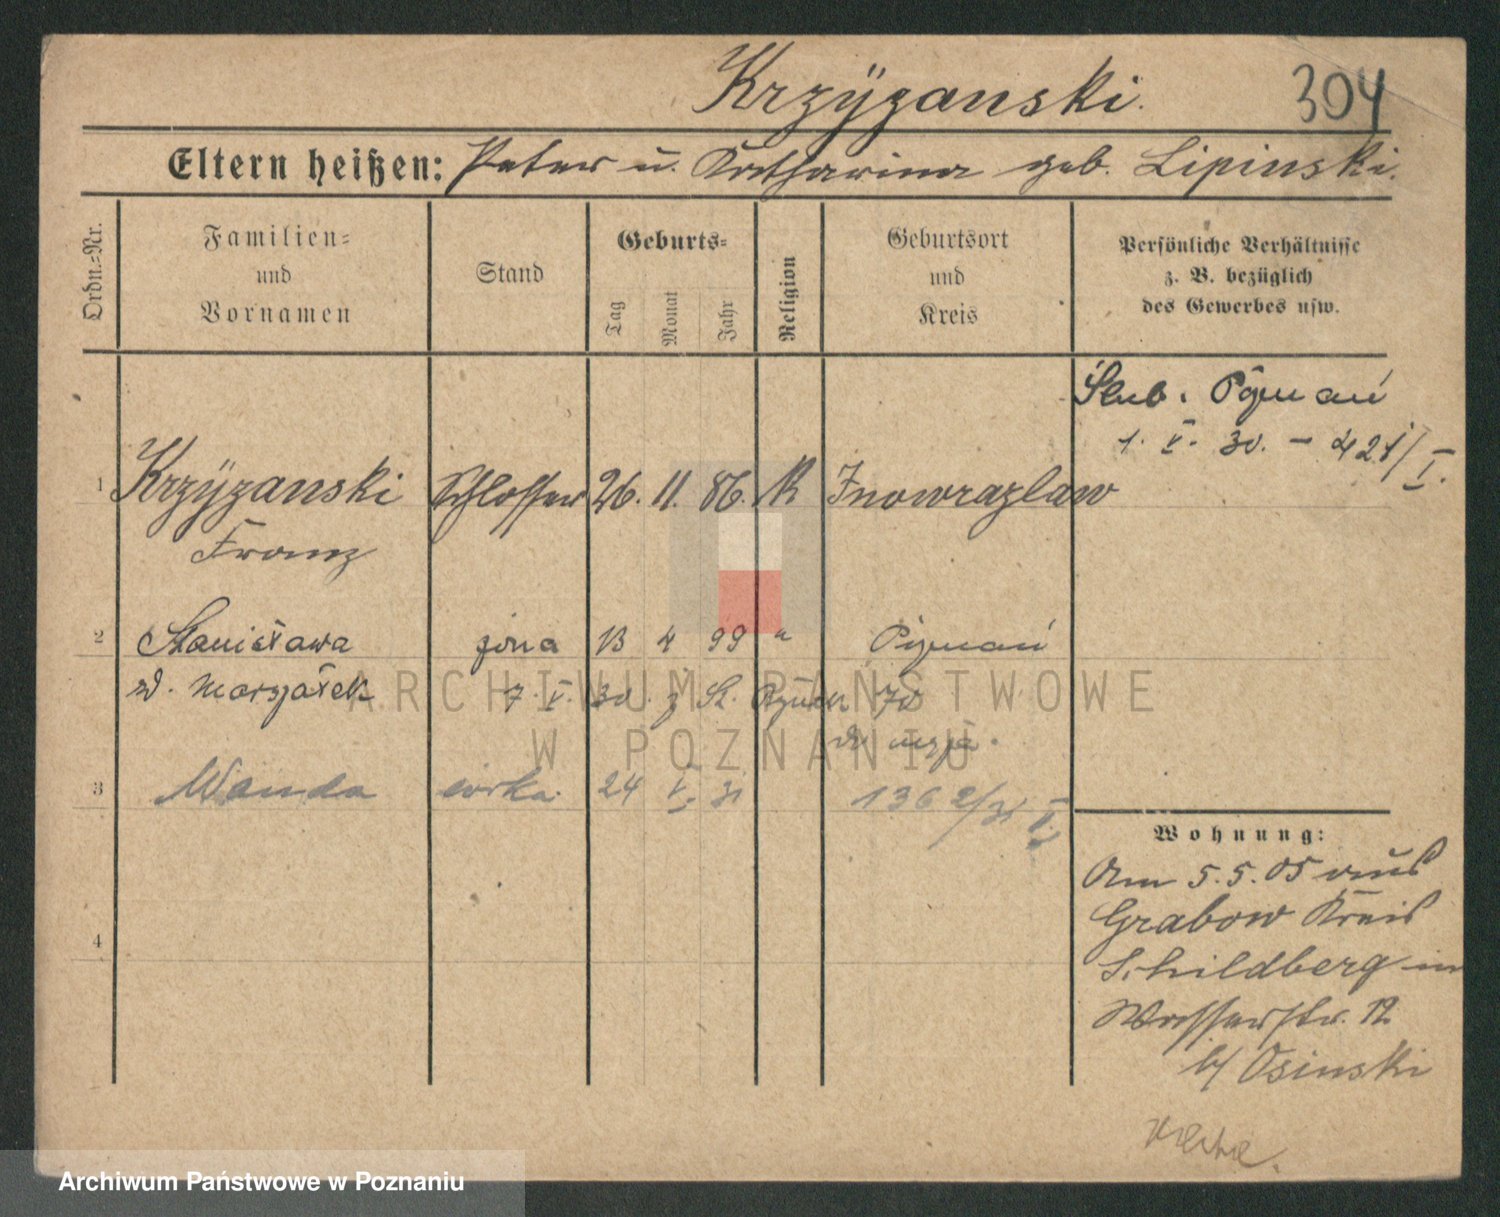 Krzÿżanski.
304
Eltern heißen: Peter u. Katharina geb. Lipinski.
Ordn.-Nr.
Familien-
und
Vornamen
Stand
Geburts-
Tag
Monat
Jahr
Religion
Geburtsort
und
Kreis
Persönliche Verhältnisse
z. B. bezüglich
des Gewerbes usw.
Ślub. Poznań
1. V. 30. - 421/I.
1 Krzÿżanski Schlosser 26. 11. 86. K Inowrazlaw
Franz
2 Stanisława żona 13 4 99 " Poznań
z d. Marszałek 7. V. 30. z St. 70
do męża.
3 Wanda córka 24 V. 31 1362/31 V.
4
Wohnung:
Am 5.5.05 aus
Grabow Kreis
Schildberg in
Wasserstr. 12
b/ Osinski
ARCHIWUM PAŃSTWOWE
W POZNANIU
Archiwum Państwowe w Poznaniu